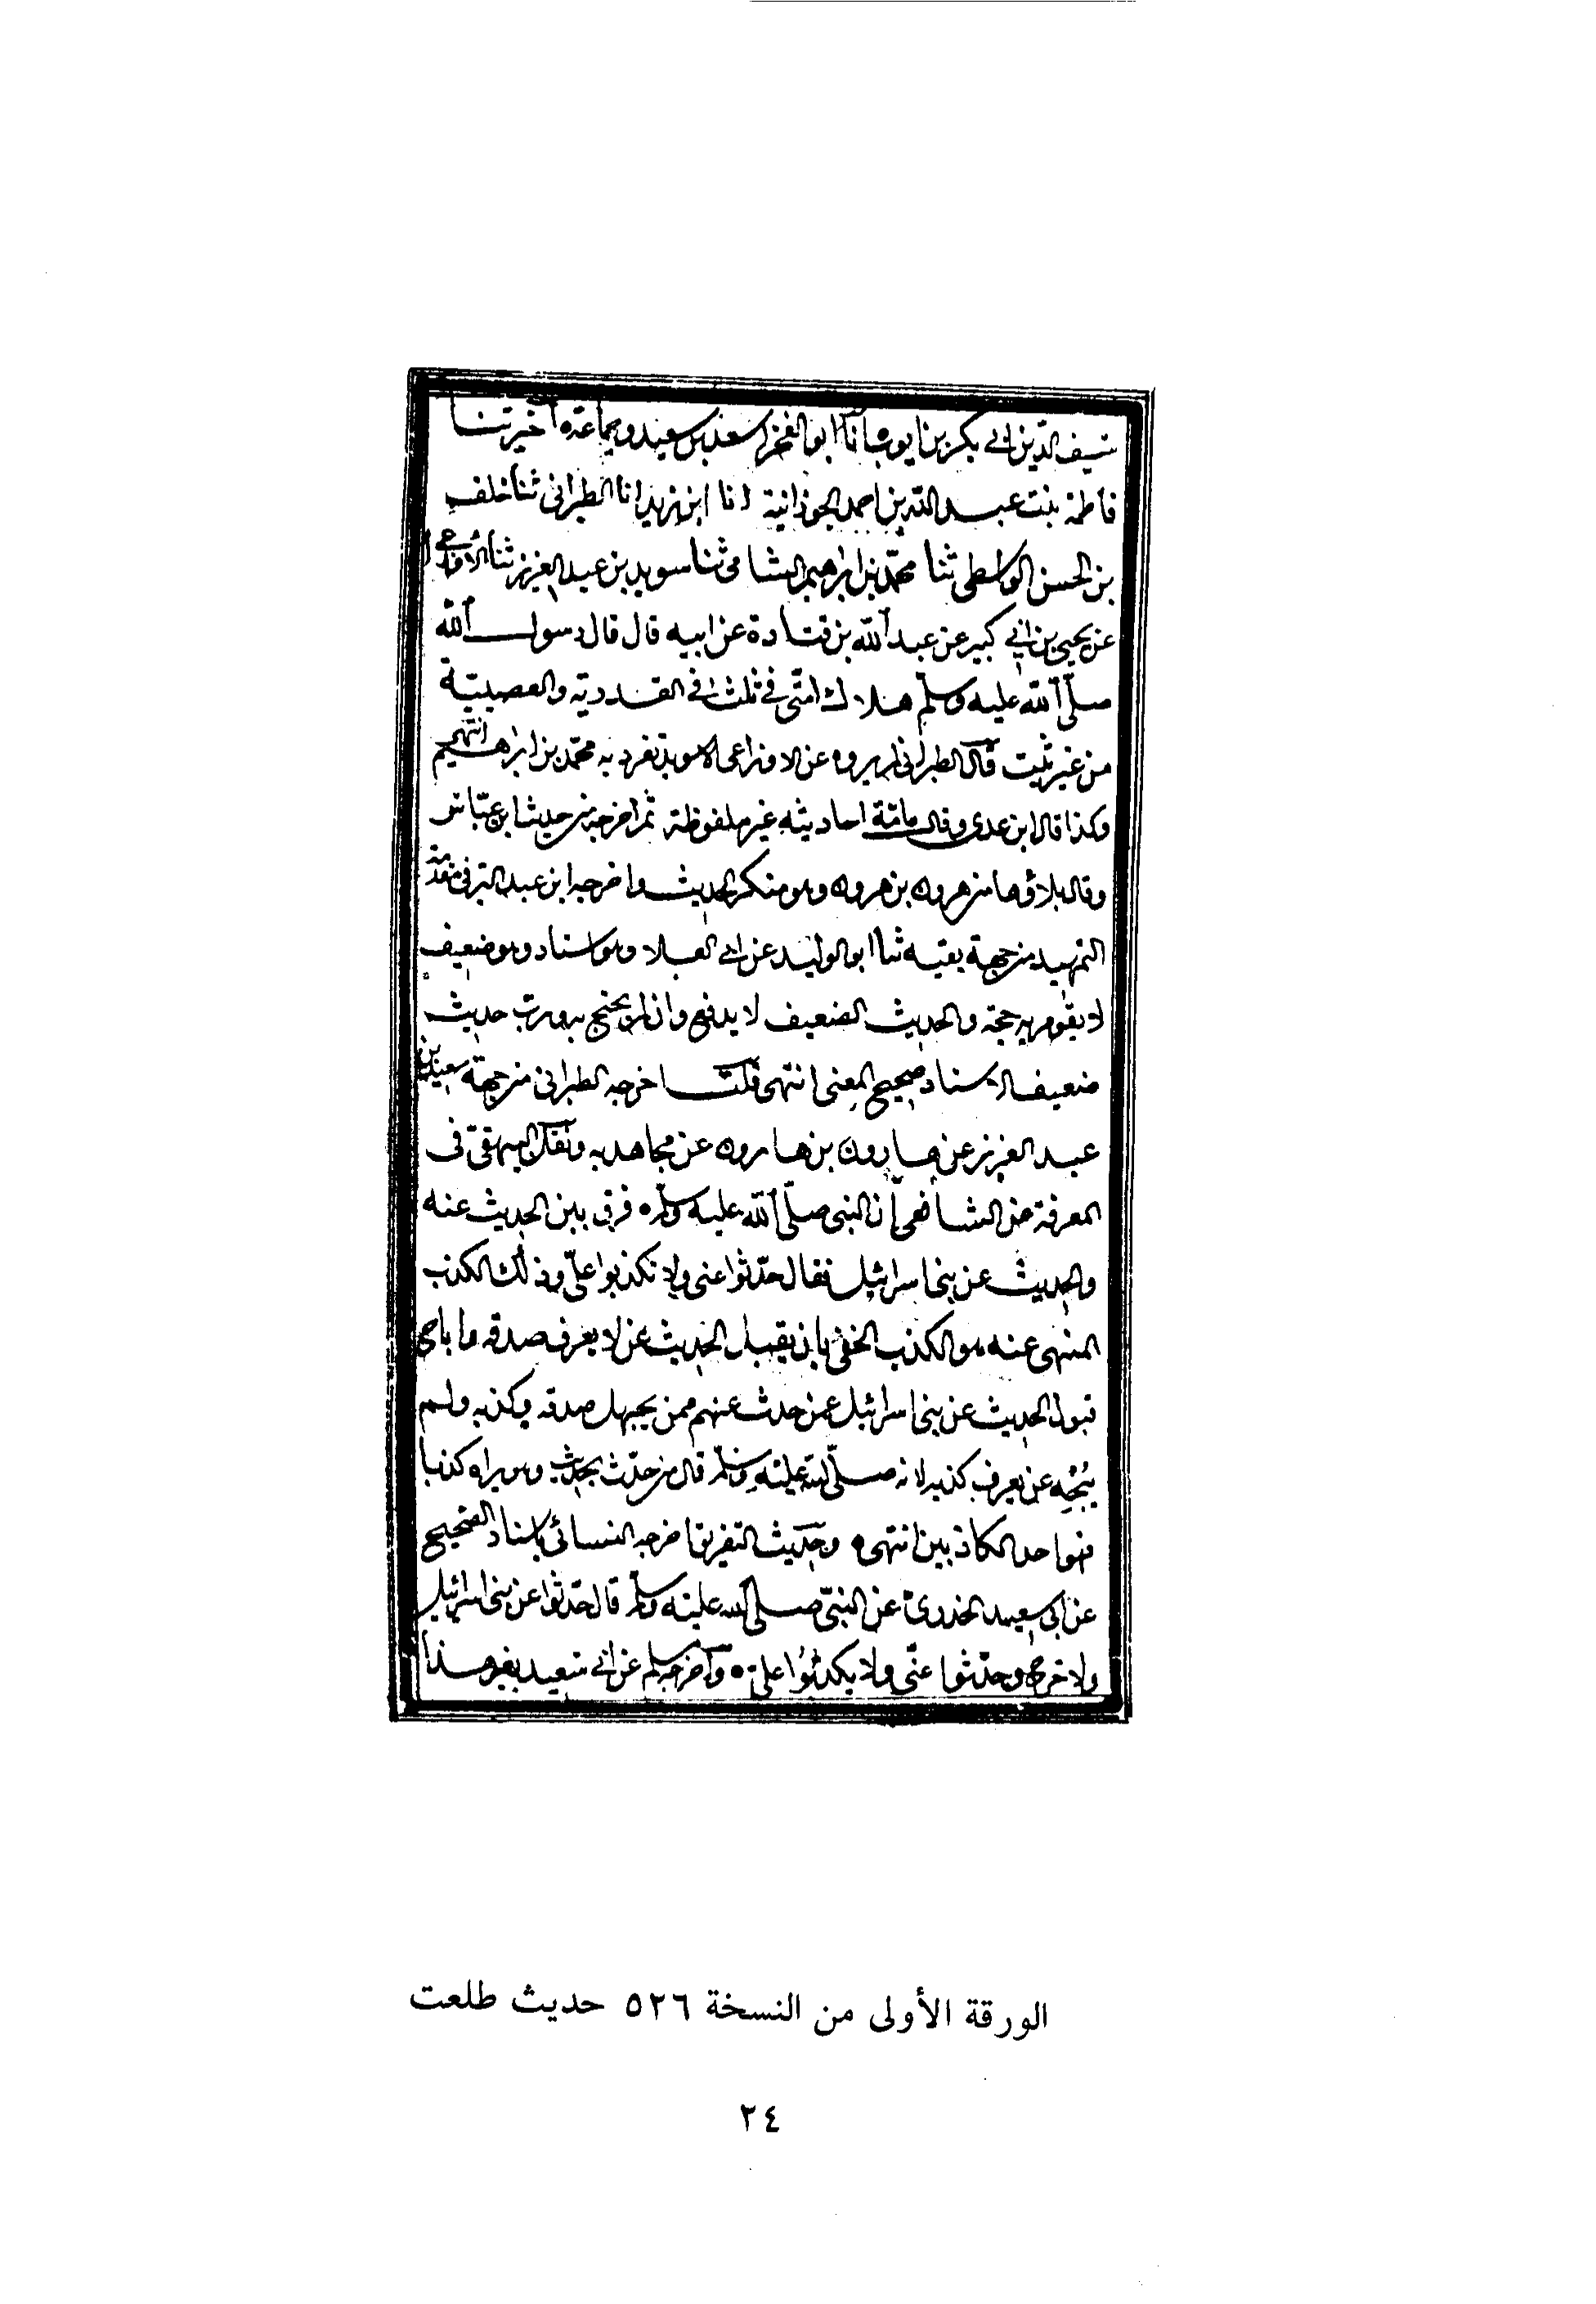 سيف الدين ابي بكر بن ايوب انا ابو الفخر اسعد بن سعيد وجماعة اخبرتنا
فاطمة بنت عبد الله بن احمد الجوزدانية انا ابن زيد انا الطبراني ثنا خلف
بن الحسن الواسطي ثنا محمّد بن ابراهيم الشامي ثنا سويد بن عبد العزيز ثنا الاوزاعي
عن يحيى بن ابي كبير عن عبد الله بن قتادة عن ابيه قال قال رسول الله
صلّى الله عليه وسلّم هلاك امّتي في ثلث في القدرية والعصبيّة
من غير ثبت قال الطبراني لم يروه عن الاوزاعي الا سويد تفرد به محمّد بن ابراهيم انتهى
وكذا قال ابن عدي وقال عامّة احاديثه غير ملفوظة ثم اخرجه من حديث ابن عبّاس
وقال بلاؤها من هرون بن هرون وهو منكر الحديث واخرجه ابن عبد البر في مقدمة
التمهيد من جهة بقيه ثنا ابو الوليد عن ابي العلا وهو اسناد وهو ضعيف
لا يقوم به حجة والحديث الضعيف لا يدفع وان لم يحتج به ورب حديث
ضعيف الاسناد صحيح المعنى انتهى قلت اخرجه الطبراني من جهة سعيد بن
عبد العزيز عن هارون بن هارون عن مجاهد به ونقل البيهقي في
المعرفة عن الشافعي أن النبي صلّى الله عليه وسلّم فرق بين الحديث عنه
والحديث عن بني اسرائيل فقال حدّثوا عني ولا تكذبوا عليّ وذلك الكذب
المنهي عنه هو الكذب الخفي بان يقبل الحديث عن لا يعرف صدقه
قبول الحديث عن بني اسرائيل عن حدث عنهم ممن يجهل صدقه وكذبه ولم
عن يعرف كذبه لانه صلّى الله عليه وسلّم قال من حدّث بحديث وهو يراه كذبا
فهو احد الكاذبين انتهى وحديث التفريق اخرجه النسائي باسناد الصحيح
عن ابي سعيد الخدري عن النبيّ صلى الله عليه وسلم قال حدّثوا عن بني اسرائيل
ولا حرج وحدّثوا عنّي ولا تكذبوا عليّ واخرجه مسلم عن ابي سعيد بغير هذا
الورقة الأولى من النسخة ٥٢٦ حديث طلعت
٢٤